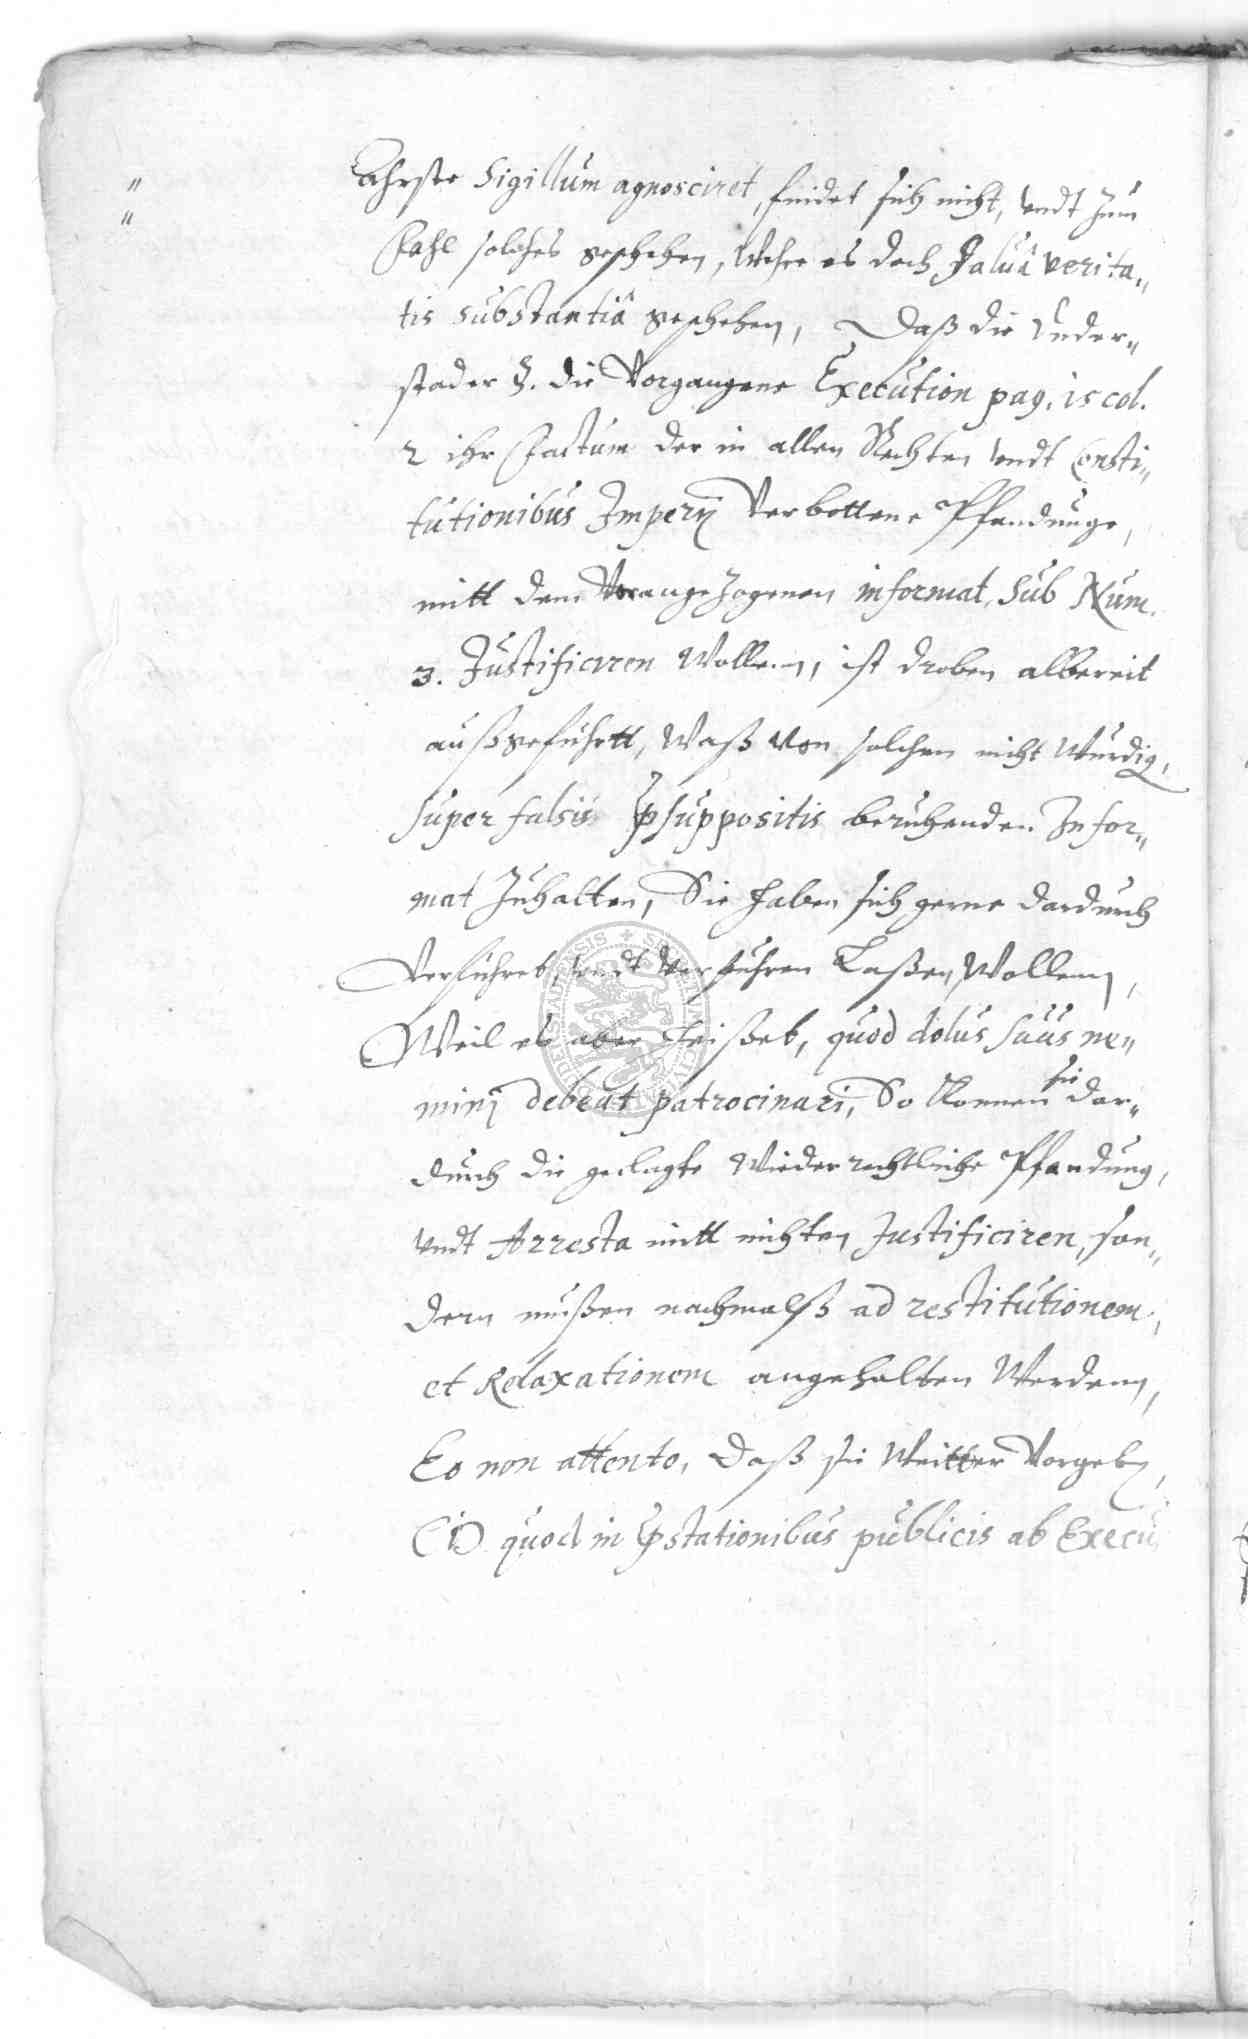 "
"
Ahrste Sigillum agnosciret, findet sich nicht, undt zum
Fahl solches geschehen, Wehre es doch Salua verita„
tis substantiâ geschehen, Daß die Inder„
stader §. die Vorgangene Execution pag. 15 col.
2 ihr Factum der in allen Rechten undt Consti„
tutionibus Imperÿ Verbottene Pfandunge,
mitt dem Vorangezogenen informat. Sub Num.
3. Justificiren Wollenn, ist droben albereit
außgeführtt, Waß von solchen nicht Würdig,
super falsis p̄suppositis beruhenden Infor„
mat Zuhalten, Sie haben sich gerne dardurch
Verfuhret, undt Verfuhren Laßen, Wollenn,
Weil es aber heißet, quod dolus suus ne„
mini debeat patrocinari, So Konnen sie dar„
durch die geclagte Wiederrechtliche Pfandung,
undt Arresta mitt nichten Justificiren, son„
dern mußen nachmalß ad restitutionem,
et Relaxationem angehalten Werdenn,
Eo non attento, Daß sie Weitter Vorgeben,
quod in p̄stationibus publicis ab Execu„